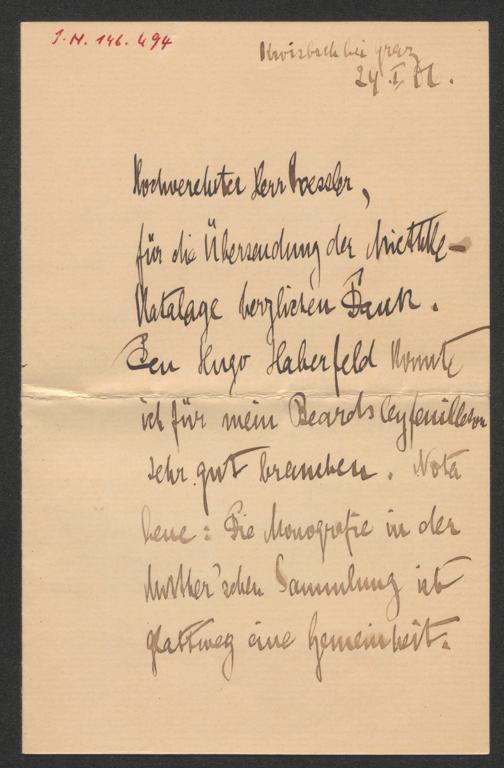 J. N. 146.494
Kroisbach bei Graz
24. I.
Hochverehrter Herr Roessler,
für die Übersendung der Miethke-
Kataloge herzlichen Dank.
Den Hugo Haberfeld konnte
ich für mein Beardsleyfeuilleton
sehr gut brauchen. Nota
bene: Die Monografie in der
Muther'schen Sammlung ist
glattweg eine Gemeinheit.